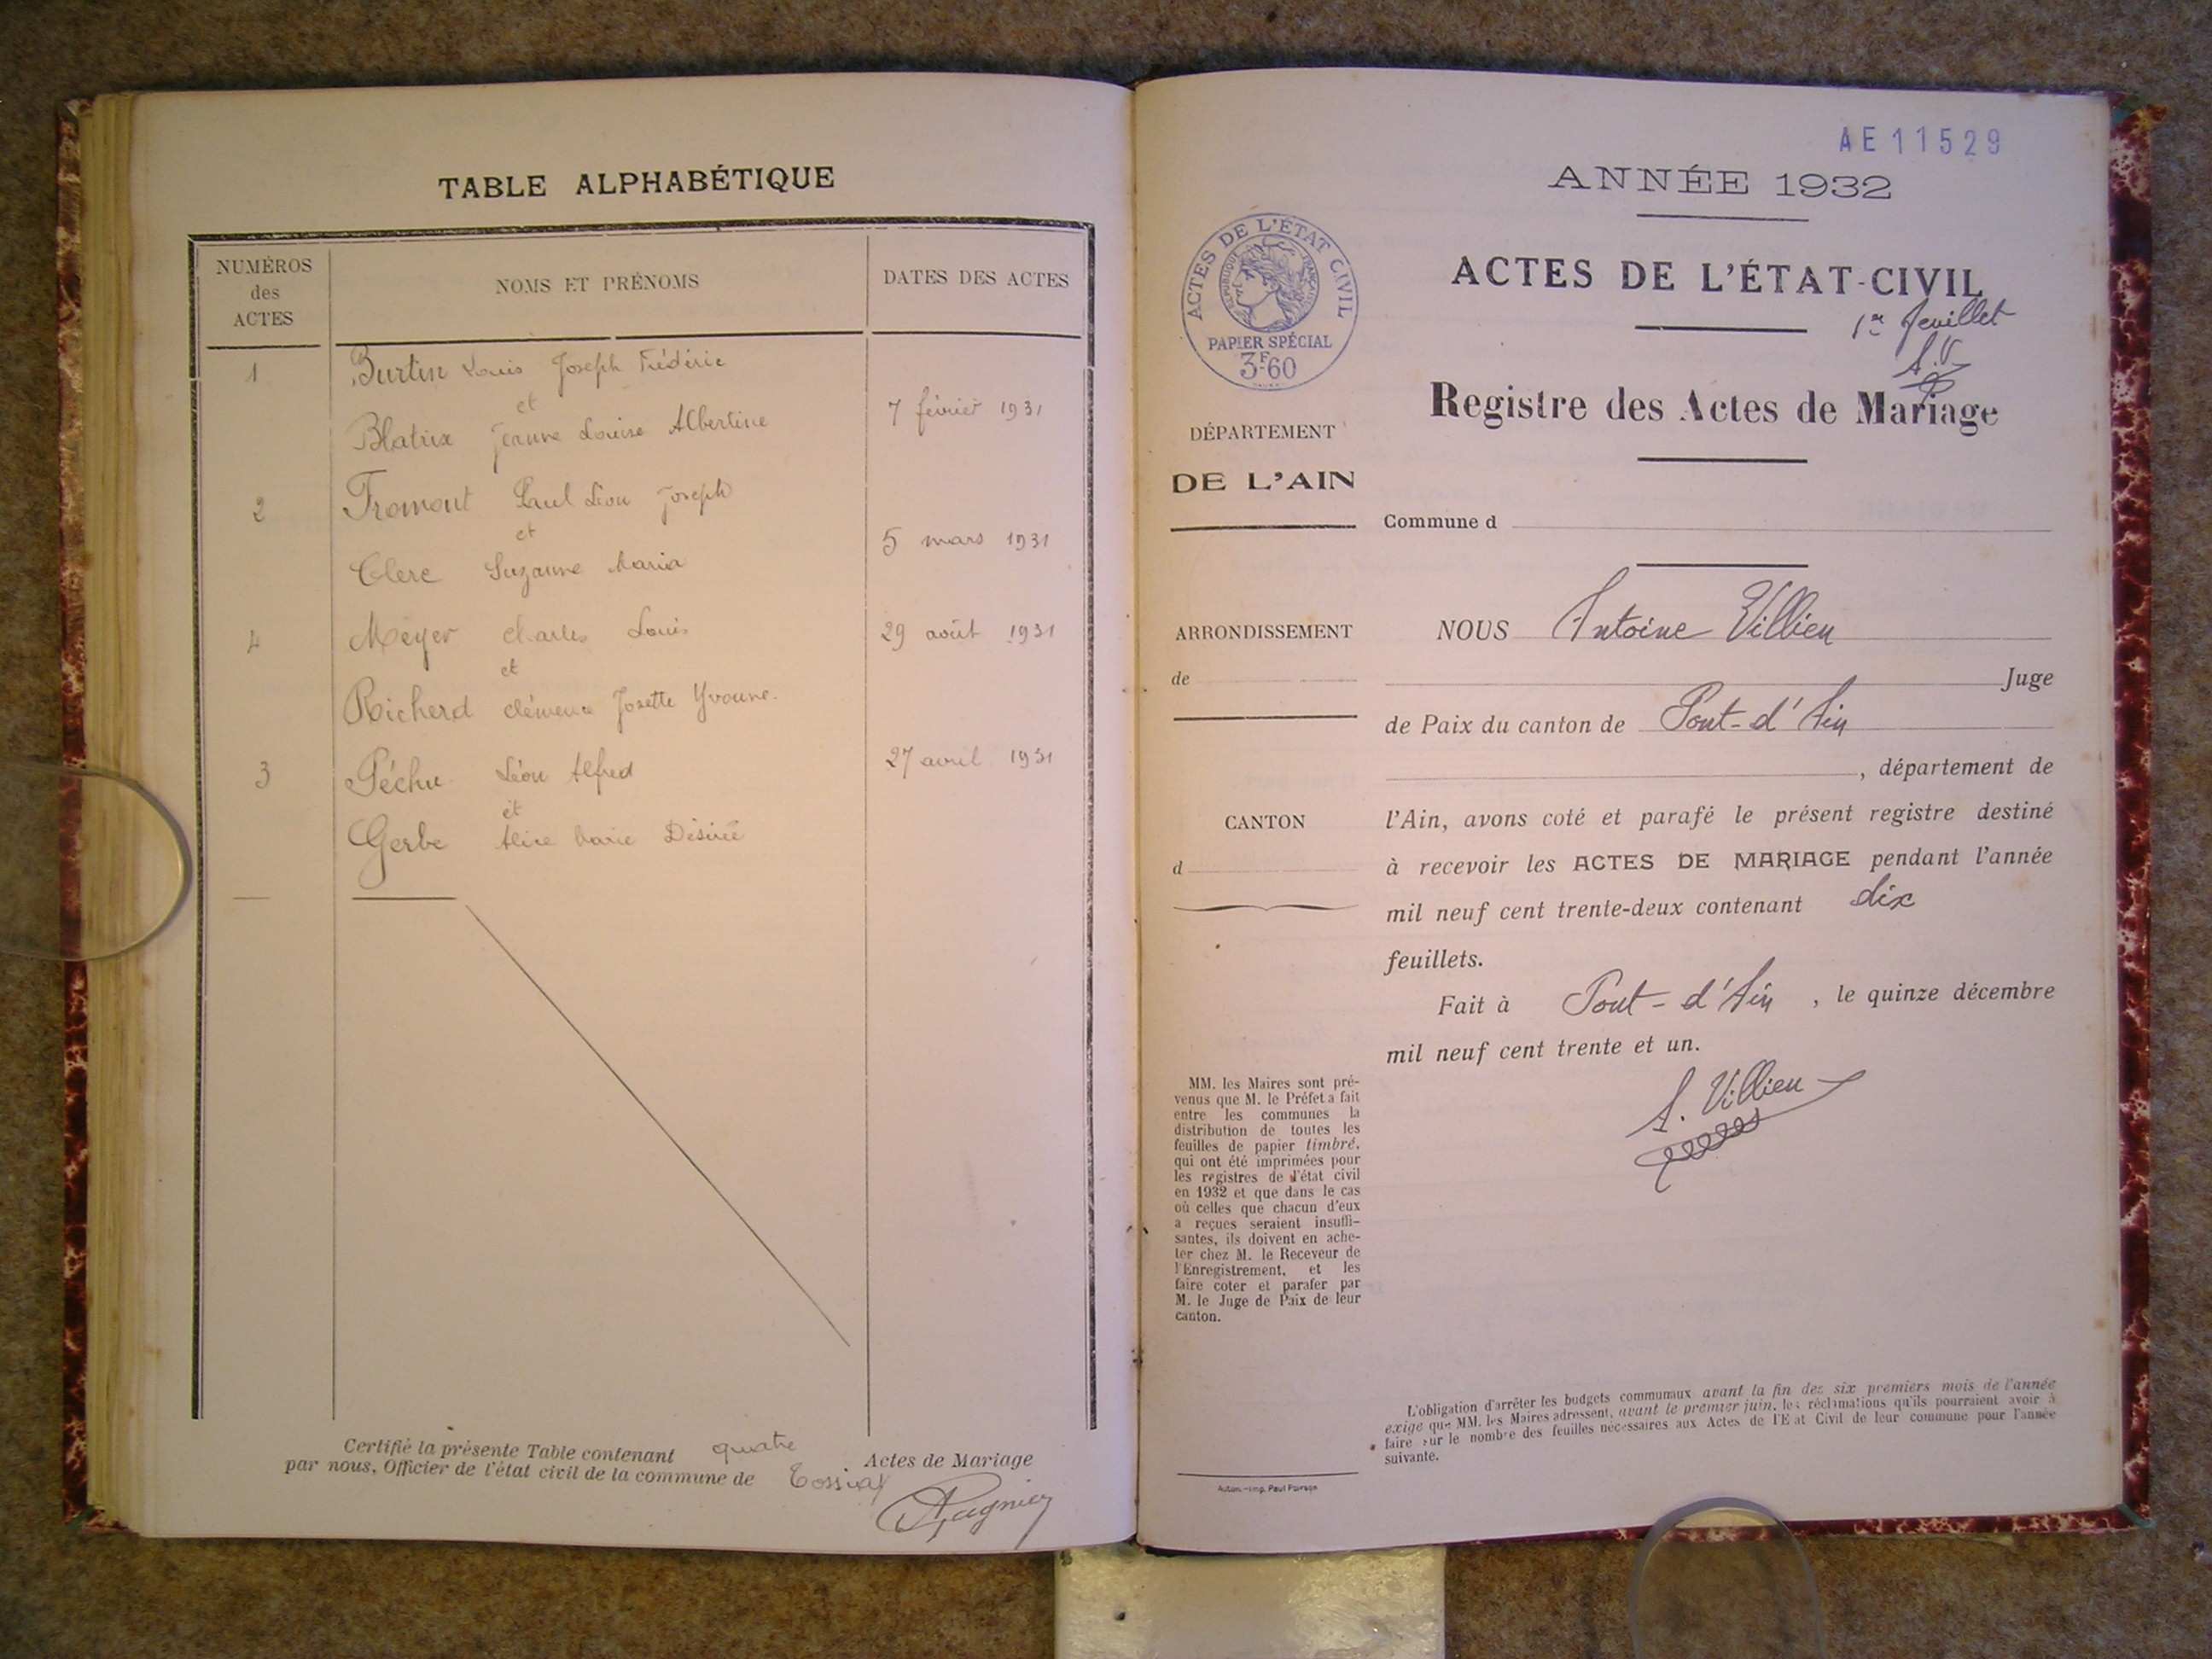 TABLE ALPHABÉTIQUE
NUMÉROS
des
ACTES
NOMS ET PRÉNOMS
DATES DES ACTES
1
Burtin Louis Joseph Frédéric
et
Blatrix Jeanne Louise Albertine
7 février 1931
2
Fromont Paul Léon Joseph
et
Clerc Suzanne Maria
5 mars 1931
4
Meyer Charles Louis
29 août 1931
et
Richerd Clémence Josette Yvonne.
3
Péchu Léon Alfred
27 avril 1931
et
Gerbe Alice Marie Désirée
Certifié la présente Table contenant quatre Actes de Mariage
par nous, Officier de l'état civil de la commune de Tossiat
AE11529
ANNÉE 1932
ACTES DE L'ÉTAT CIVIL
RÉPUBLIQUE FRANÇAISE
PAPIER SPÉCIAL
3F60
ACTES DE L'ÉTAT-CIVIL
1er feuillet
A.V
Registre des Actes de Mariage
DÉPARTEMENT
DE L'AIN
Commune d
ARRONDISSEMENT
de
CANTON
d
NOUS Antoine Villien
Juge
de Paix du canton de Pont-d'Ain
, département de
l'Ain, avons coté et parafé le présent registre destiné
à recevoir les ACTES DE MARIAGE pendant l'année
mil neuf cent trente-deux contenant dix
feuillets.
Fait à Pont-d'Ain, le quinze décembre
mil neuf cent trente et un.
A. Villien
MM. les Maires sont pré-
venus que M. le Préfet a fait
entre les communes la
distribution de toutes les
feuilles de papier timbré,
qui ont été imprimées pour
les registres de l'état civil
en 1932 et que dans le cas
où celles que chacun d'eux
a reçues seraient insuffi-
santes, ils doivent en ache-
ter chez M. le Receveur de
l'Enregistrement, et les
faire coter et parafer par
M. le Juge de Paix de leur
canton.
L'obligation d'arrêter les budgets communaux avant la fin des six premiers mois de l'année
exige que MM. les Maires adressent, avant le premier juin, les réclamations qu'ils pourraient avoir à
faire sur le nombre des feuilles nécessaires aux Actes de l'Etat Civil de leur commune pour l'année
suivante.
Imp. Paul